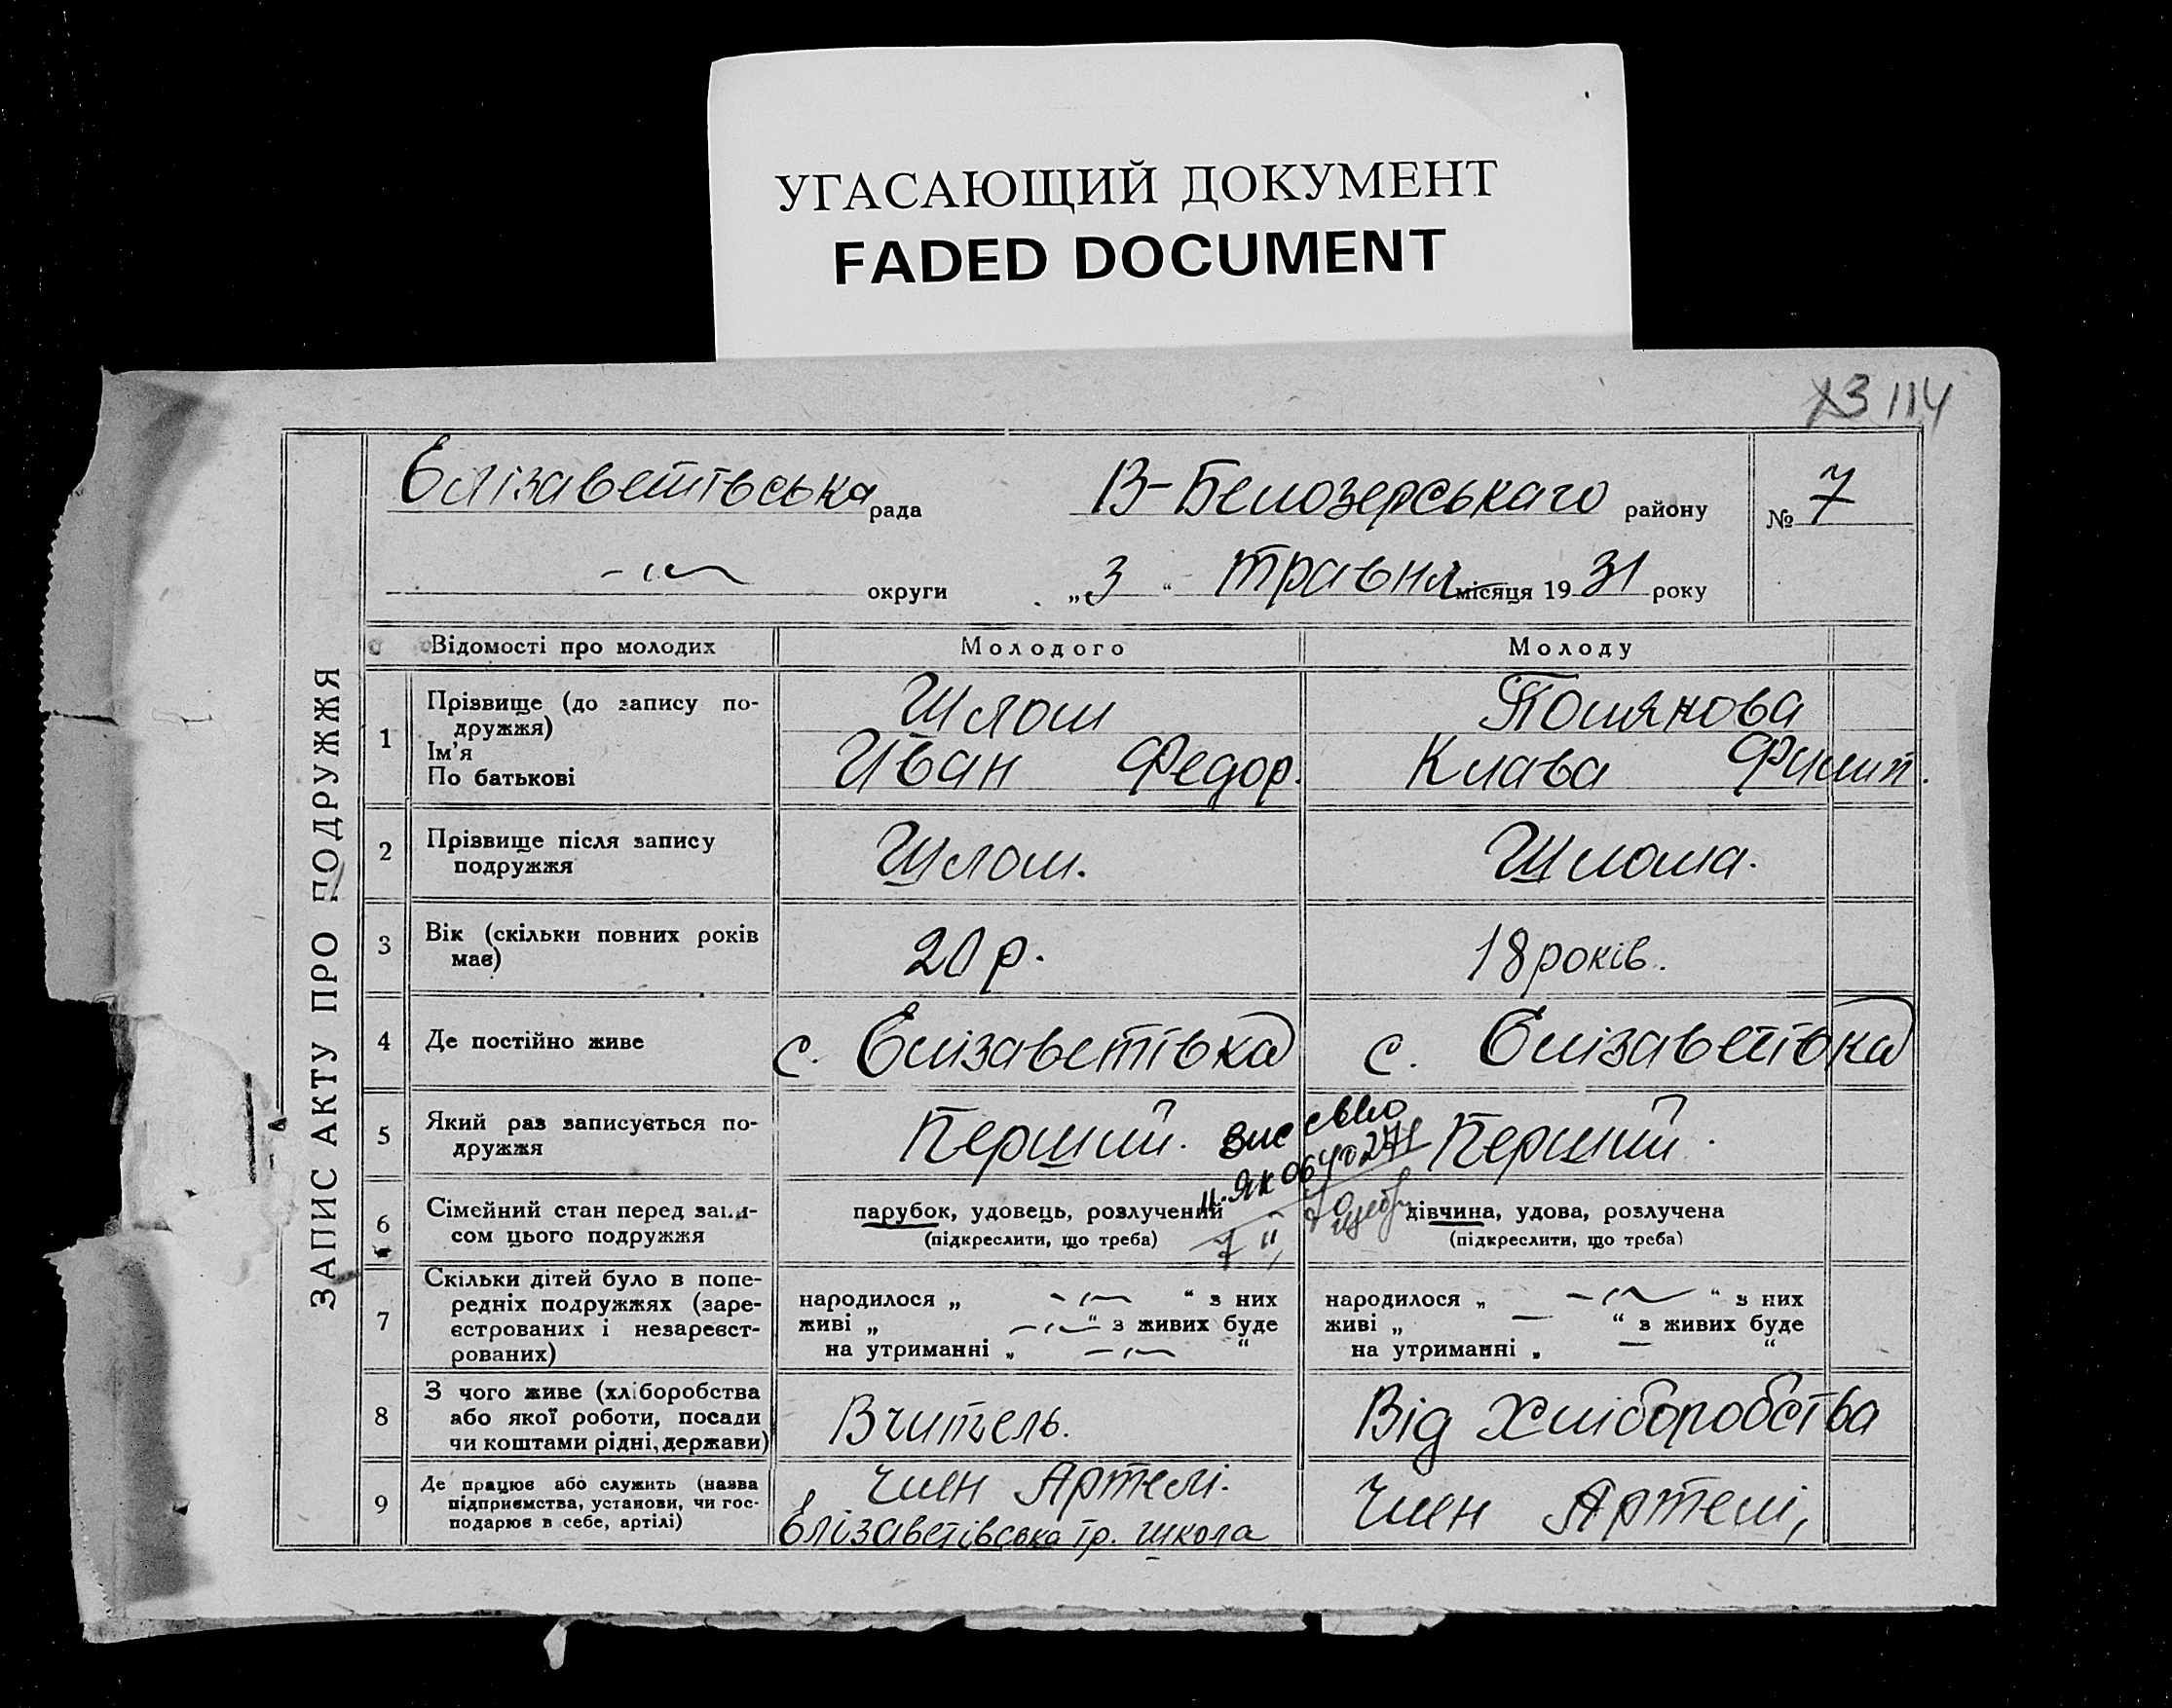 УГАСАЮЩИЙ ДОКУМЕНТ
FADED DOCUMENT
73 114
ЗАПИС АКТУ ПРО ПОДРУЖЖЯ
Єлізаветівська рада В-Белозерськаго району № 7
округи „3“ травня місяця 1931 року
Відомості про молодих Молодого Молоду
1 Прізвище (до запису по-
дружжя)
Ім'я
По батькові
Шлом
Иван Федор.
Полянова
Клава Филип.
2 Прізвище після запису
подружжя
Шлом.
Шлома.
3 Вік (скільки повних років
має)
20 р.
18 років.
4 Де постійно живе
с. Єлізаветівка
с. Єлізаветівка
5 Який раз записується по-
дружжя
Перший.
Перший.
ЯК 0640271
6 Сімейний стан перед запи-
сом цього подружжя
парубок, удовець, розлучений
(підкреслити, що треба)
дівчина, удова, розлучена
(підкреслити, що треба)
7 Скільки дітей було в попе-
редніх подружжях (заре-
єстрованих і незареєст-
рованих)
народилося „ “ з них
живі „ “ з живих буде
на утриманні „ “
народилося „ “ з них
живі „ — “ з живих буде
на утриманні „ — “
8 З чого живе (хліборобства
або якої роботи, посади
чи коштами рідні, держави)
Вчитель.
Від Хліборобства
9 Де працює або служить (назва
підприємства, установи, чи гос-
подарює в себе, артілі)
Член Артелі.
Єлізаветівська тр. школа
Член Артелі,